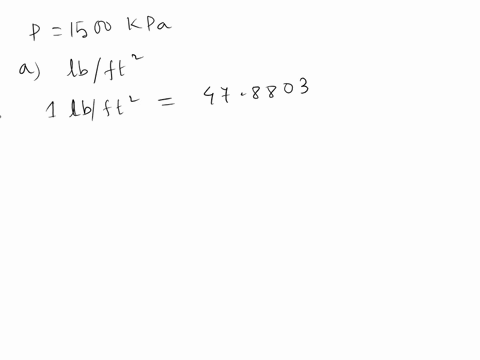 P = 1500 KPa
a) lb/ft²
1 lb/ft² = 47.8803